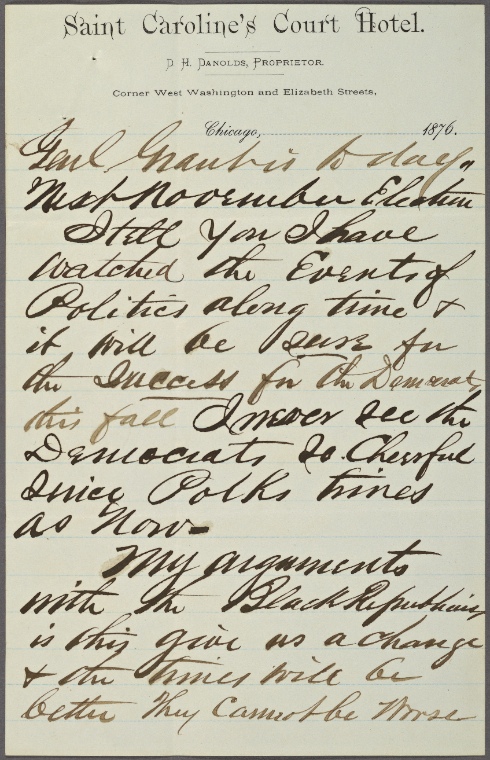 Saint Caroline's Court Hotel.
D. H. Danolds, Proprietor.
Corner West Washington and Elizabeth Streets,
Chicago, 1876.
Genl Grant is to day,,
Next November Election
I tell you I have
Watched the Events of
Politics along time &
it will be sure for
the Success for the Democrats
this fall I never see the
Democrats so Cheerful
since Polks times
as Now-
My arguments
with the Black Republicans
is this give us a change
& the times will be
better They Cannot be Worse